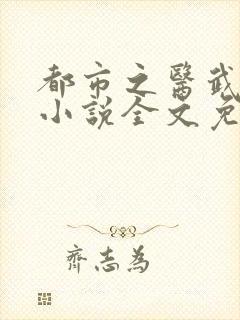 都市之醫武
小說全文免
齊志為